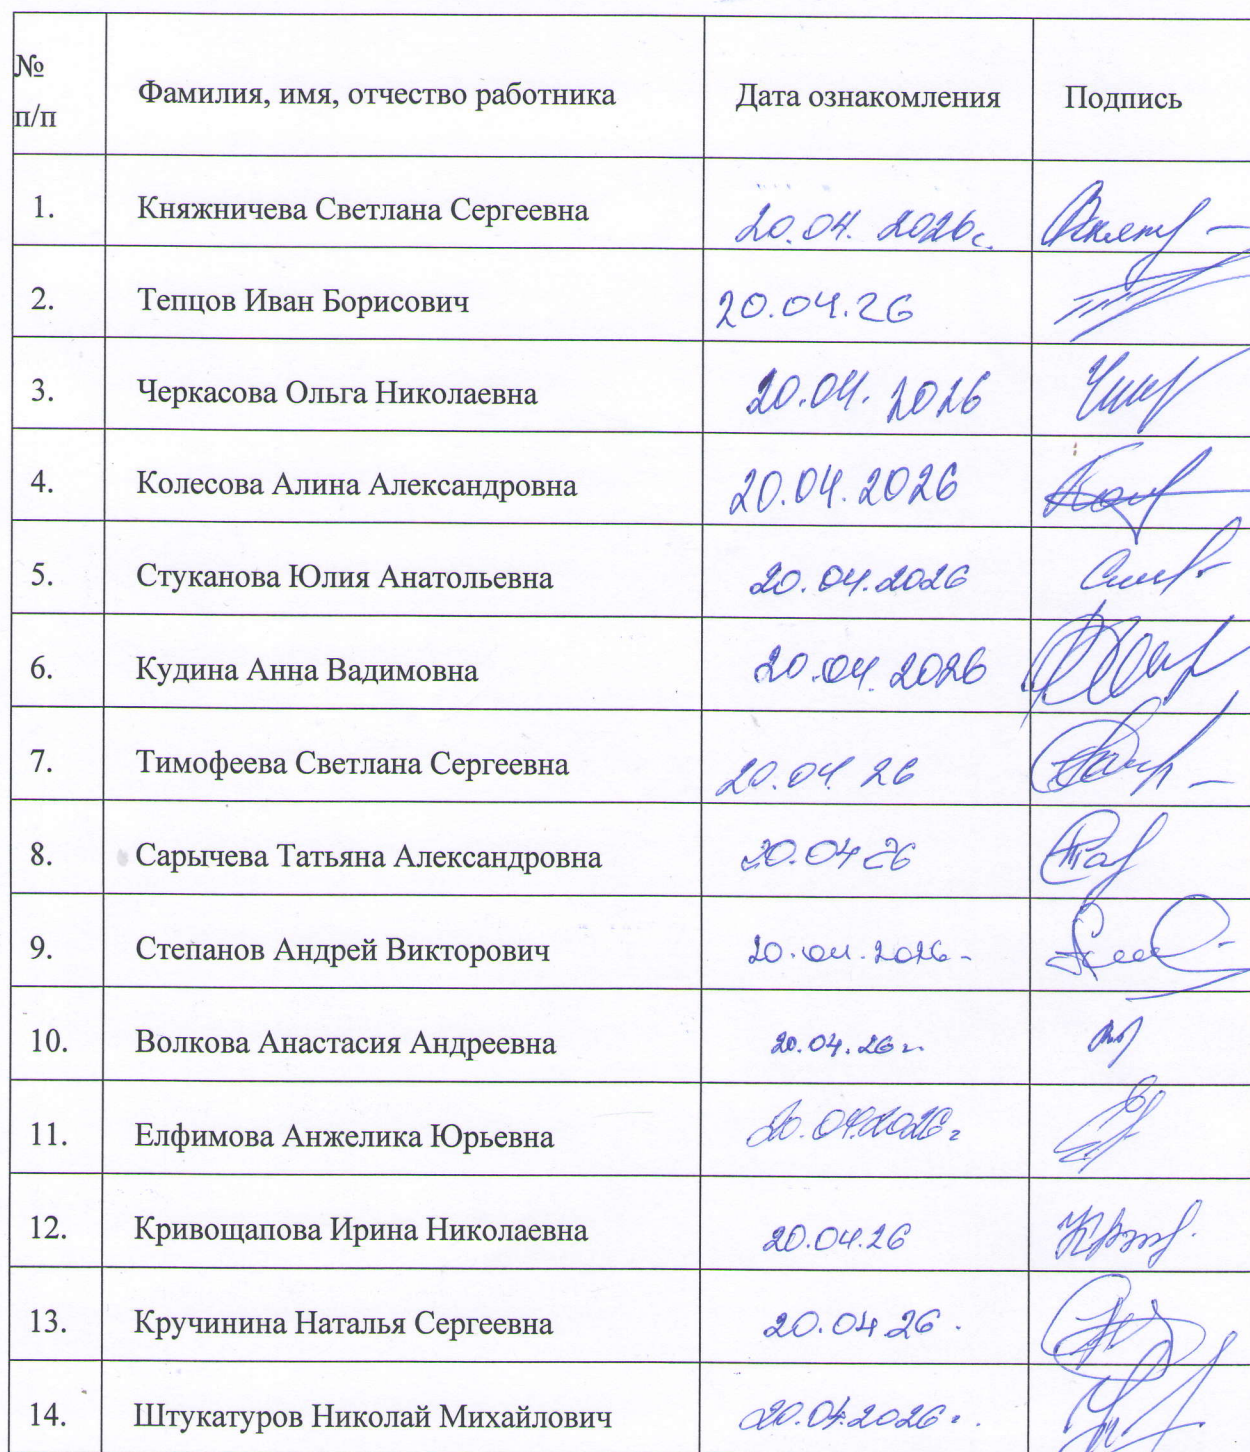 № п/п Фамилия, имя, отчество работника Дата ознакомления Подпись
1. Княжничева Светлана Сергеевна 20.04.2026г.
2. Тепцов Иван Борисович 20.04.26
3. Черкасова Ольга Николаевна 20.04.2026
4. Колесова Алина Александровна 20.04.2026
5. Стуканова Юлия Анатольевна 20.04.2026
6. Кудина Анна Вадимовна 20.04.2026
7. Тимофеева Светлана Сергеевна 20.04.26
8. Сарычева Татьяна Александровна 20.04.26
9. Степанов Андрей Викторович 20.04.2026
10. Волкова Анастасия Андреевна 20.04.26г.
11. Елфимова Анжелика Юрьевна 20.04.2026г
12. Кривощапова Ирина Николаевна 20.04.26
13. Кручинина Наталья Сергеевна 20.04.26.
14. Штукатуров Николай Михайлович 20.04.2026г.